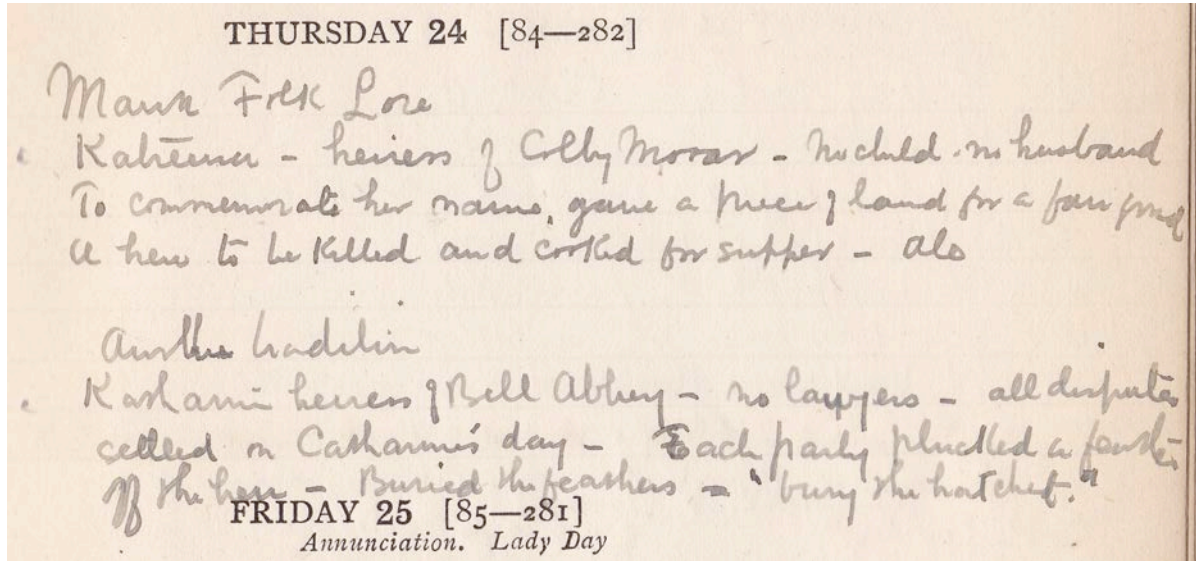 THURSDAY 24 [84—282]
Manx Folk Lore
Katrēena - heiress of Colby Mooar - no child. no husband
To commemorate her name, gave a piece of land for a fair
A hen to be killed and cooked for supper - also
Another tradition
Katharine heiress of Bell Abbey - no lawyers - all disputes
settled on Catharine's day - Each party plucked a feather
off the hen - Buried the feathers - "bury the hatchet."
FRIDAY 25 [85—281]
Annunciation. Lady Day